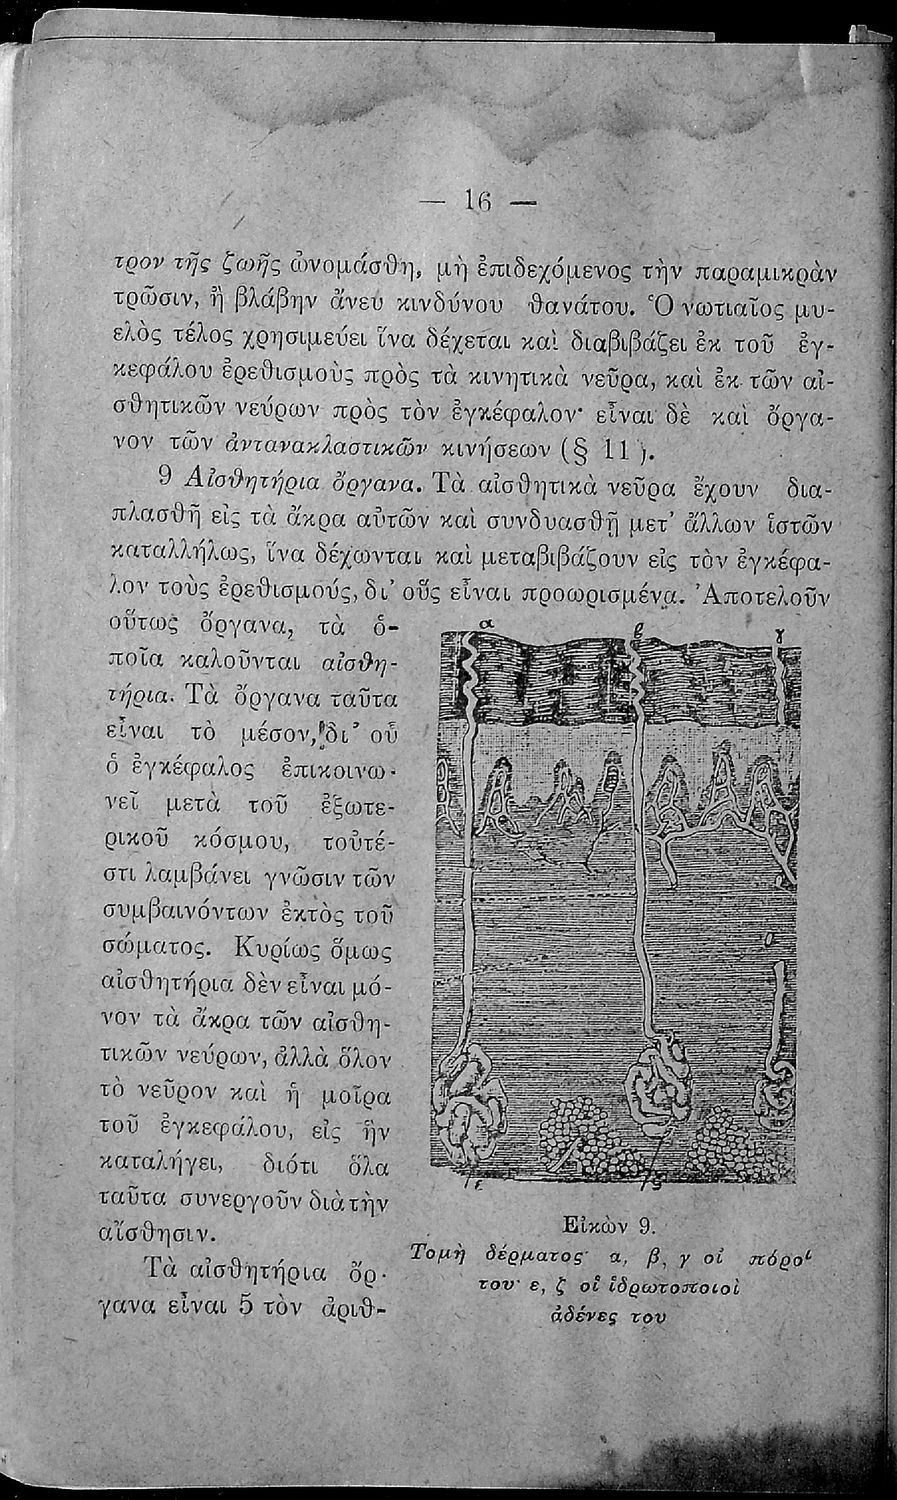 — 16 —
τρον τῆς ζωῆς ὠνομάσθη, μὴ ἐπιδεχόμενος τὴν παραμικρὰν
τρῶσιν, ἢ βλάβην ἄνευ κινδύνου θανάτου. Ὁ νωτιαῖος μυ-
ελὸς τέλος χρησιμεύει ἵνα δέχεται καὶ διαβιβάζει ἐκ τοῦ ἐγ-
κεφάλου ἐρεθισμοὺς πρὸς τὰ κινητικὰ νεῦρα, καὶ ἐκ τῶν αἰ-
σθητικῶν νεύρων πρὸς τὸν ἐγκέφαλον· εἶναι δὲ καὶ ὄργα-
νον τῶν ἀντανακλαστικῶν κινήσεων (§ 11).
9 Αἰσθητήρια ὄργανα. Τὰ αἰσθητικὰ νεῦρα ἔχουν δια-
πλασθῆ εἰς τὰ ἄκρα αὐτῶν καὶ συνδυασθῆ μετ' ἄλλων ἱστῶν
καταλλήλως, ἵνα δέχωνται καὶ μεταβιβάζουν εἰς τὸν ἐγκέφα-
λον τοὺς ἐρεθισμούς, δι' οὓς εἶναι προωρισμένα. Ἀποτελοῦν
οὕτως ὄργανα, τὰ ὁ-
ποῖα καλοῦνται αἰσθη-
τήρια. Τὰ ὄργανα ταῦτα
εἶναι τὸ μέσον, δι' οὗ
ὁ ἐγκέφαλος ἐπικοινω-
νεῖ μετὰ τοῦ ἐξωτε-
ρικοῦ κόσμου, τοὐτέ-
στι λαμβάνει γνῶσιν τῶν
συμβαινόντων ἐκτὸς τοῦ
σώματος. Κυρίως ὅμως
αἰσθητήρια δὲν εἶναι μό-
νον τὰ ἄκρα τῶν αἰσθη-
τικῶν νεύρων, ἀλλὰ ὅλον
τὸ νεῦρον καὶ ἡ μοῖρα
τοῦ ἐγκεφάλου, εἰς ἣν
καταλήγει, διότι ὅλα
ταῦτα συνεργοῦν διὰ τὴν
αἴσθησιν.
Τὰ αἰσθητήρια ὄρ-
γανα εἶναι 5 τὸν ἀριθ-
α β γ
ε ζ
Εἰκὼν 9.
Τομὴ δέρματος· α, β, γ οἱ πόροι
του· ε, ζ οἱ ἱδρωτοποιοὶ
ἀδένες του